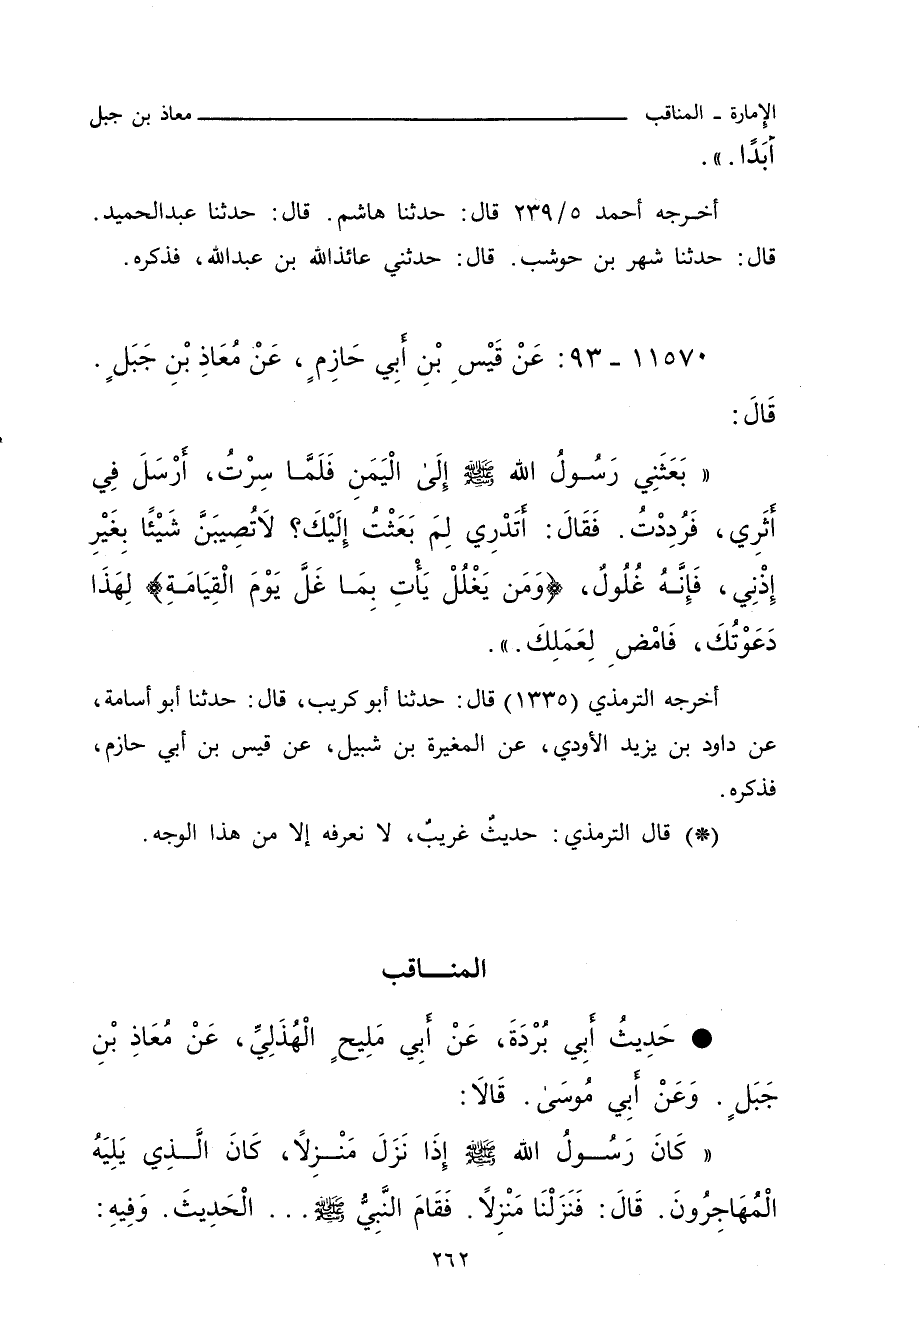 الإمارة - المناقب ــــــــــــــــ معاذ بن جبل
أَبَدًا. ».
أخرجه أحمد ٢٣٩/٥ قال: حدثنا هاشم. قال: حدثنا عبدالحميد.
قال: حدثنا شهر بن حوشب. قال: حدثني عائذالله بن عبدالله، فذكره.
١١٥٧٠ - ٩٣: عَنْ قَيْسِ بْنِ أَبِي حَازِمٍ، عَنْ مُعَاذِ بْنِ جَبَلٍ.
قَالَ:
« بَعَثَنِي رَسُولُ الله ﷺ إِلَىٰ الْيَمَنِ فَلَمَّا سِرْتُ، أَرْسَلَ فِي
أَثَرِي، فَرُدِدْتُ. فَقَالَ: أَتَدْرِي لِمَ بَعَثْتُ إِلَيْكَ؟ لَاتُصِيبَنَّ شَيْئًا بِغَيْرِ
إِذْنِي، فَإِنَّهُ غُلُولٌ، ﴿وَمَن يَغْلُلْ يَأْتِ بِمَا غَلَّ يَوْمَ الْقِيَامَةِ﴾ لِهَذَا
دَعَوْتُكَ، فَامْضِ لِعَمَلِكَ. ».
أخرجه الترمذي (١٣٣٥) قال: حدثنا أبو كريب، قال: حدثنا أبو أسامة،
عن داود بن يزيد الأودي، عن المغيرة بن شبيل، عن قيس بن أبي حازم،
فذكره.
(*) قال الترمذي: حديثٌ غريبٌ، لا نعرفه إلا من هذا الوجه.
المناقب
● حَدِيثُ أَبِي بُرْدَةَ، عَنْ أَبِي مَلِيحٍ الْهُذَلِيِّ، عَنْ مُعَاذِ بْنِ
جَبَلٍ. وَعَنْ أَبِي مُوسَىٰ. قَالَا:
« كَانَ رَسُولُ الله ﷺ إِذَا نَزَلَ مَنْزِلاً، كَانَ الَّذِي يَلِيَهُ
الْمُهَاجِرُونَ. قَالَ: فَنَزَلْنَا مَنْزِلاً. فَقَامَ النَّبِيُّ ﷺ... الْحَدِيثَ. وَفِيهِ:
٢٦٢